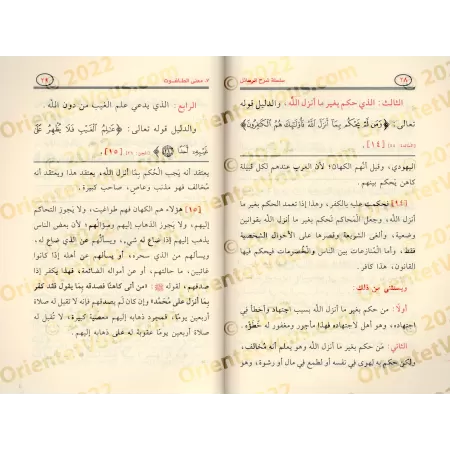 ٢٨
سلسلة شرح الرسائل
الثالث: الذي حكم بغير ما أنزل الله، والدليل قوله
تعالى: ﴿وَمَن لَّمْ يَحْكُم بِمَآ أَنزَلَ اللَّهُ فَأُوْلَٰٓئِكَ هُمُ الْكَٰفِرُونَ﴾
[المائدة: ٤٤] [١٤].
اليهودي، وقيل أنهم الكهان؛ لأن العرب عندهم لكل قبيلة
كاهن يحكم بينهم.
[١٤] فحكمت عليه بالكفر، وهذا إذا تعمد الحكم بغير ما
أنزل الله، وجعل المحاكم تحكم بغير ما أنزل الله بقوانين
وضعية، وألغى الشريعة وقصرها على الأحوال الشخصية
فقط، وأما المنازعات بين الناس والخصومات فيحكم فيها
القانون، هذا كافر.
ويستثنى من ذلك
أولاً: من حكم بغير ما أنزل الله بسبب اجتهاد وأخطأ في
اجتهاده، وهو أهل لاجتهاده فهذا مأجور ومغفور له خطؤه.
الثاني: من حكم بغير ما أنزل الله وهو يعلم أنه مخالف،
ولكن حكم به لهوى في نفسه أو لطمع في مال أو رشوة، وهو
٢. معنى الطاغوت
٢٩
الرابع: الذي يدعي علم الغيب من دون الله.
والدليل قوله تعالى: ﴿عَٰلِمُ الْغَيْبِ فَلَا يُظْهِرُ عَلَىٰ
غَيْبِهِۦٓ أَحَدًا﴾ [الجن: ٢٦] [١٥].
يعتقد أنه يجب الحكم بما أنزل الله، يعتقد هذا ويعتقد أنه
مخالف فهو مذنب وعاصٍ، صاحب كبيرة.
[١٥] هؤلاء هم الكهان فهم طواغيت، ولا يجوز التحاكم
إليهم، ولا يجوز الذهاب إليهم وسؤالهم؛ لأن بعض الناس
يذهب إليهم إذا ضاع له شيء، ويسألهم عن الذي ضاع،
ويسألهم من الذي سحره، أو يسألهم عن أهله إذا كانوا
غائبين، ما حالتهم، أو عن أمواله الضائعة، فهذا يكفر إذا
صدقهم، لقوله ﷺ: «من أتى كاهناً فصدقه بما يقول فقد كفر
بما أنزل على محمد» وإن كان لم يصدقهم فإنه لا تقبل له صلاة
أربعين يوماً، فمجرد ذهابه إليهم معصية كبيرة، لا تقبل له
صلاة أربعين يوماً عقوبة له على ذهابه إليهم.